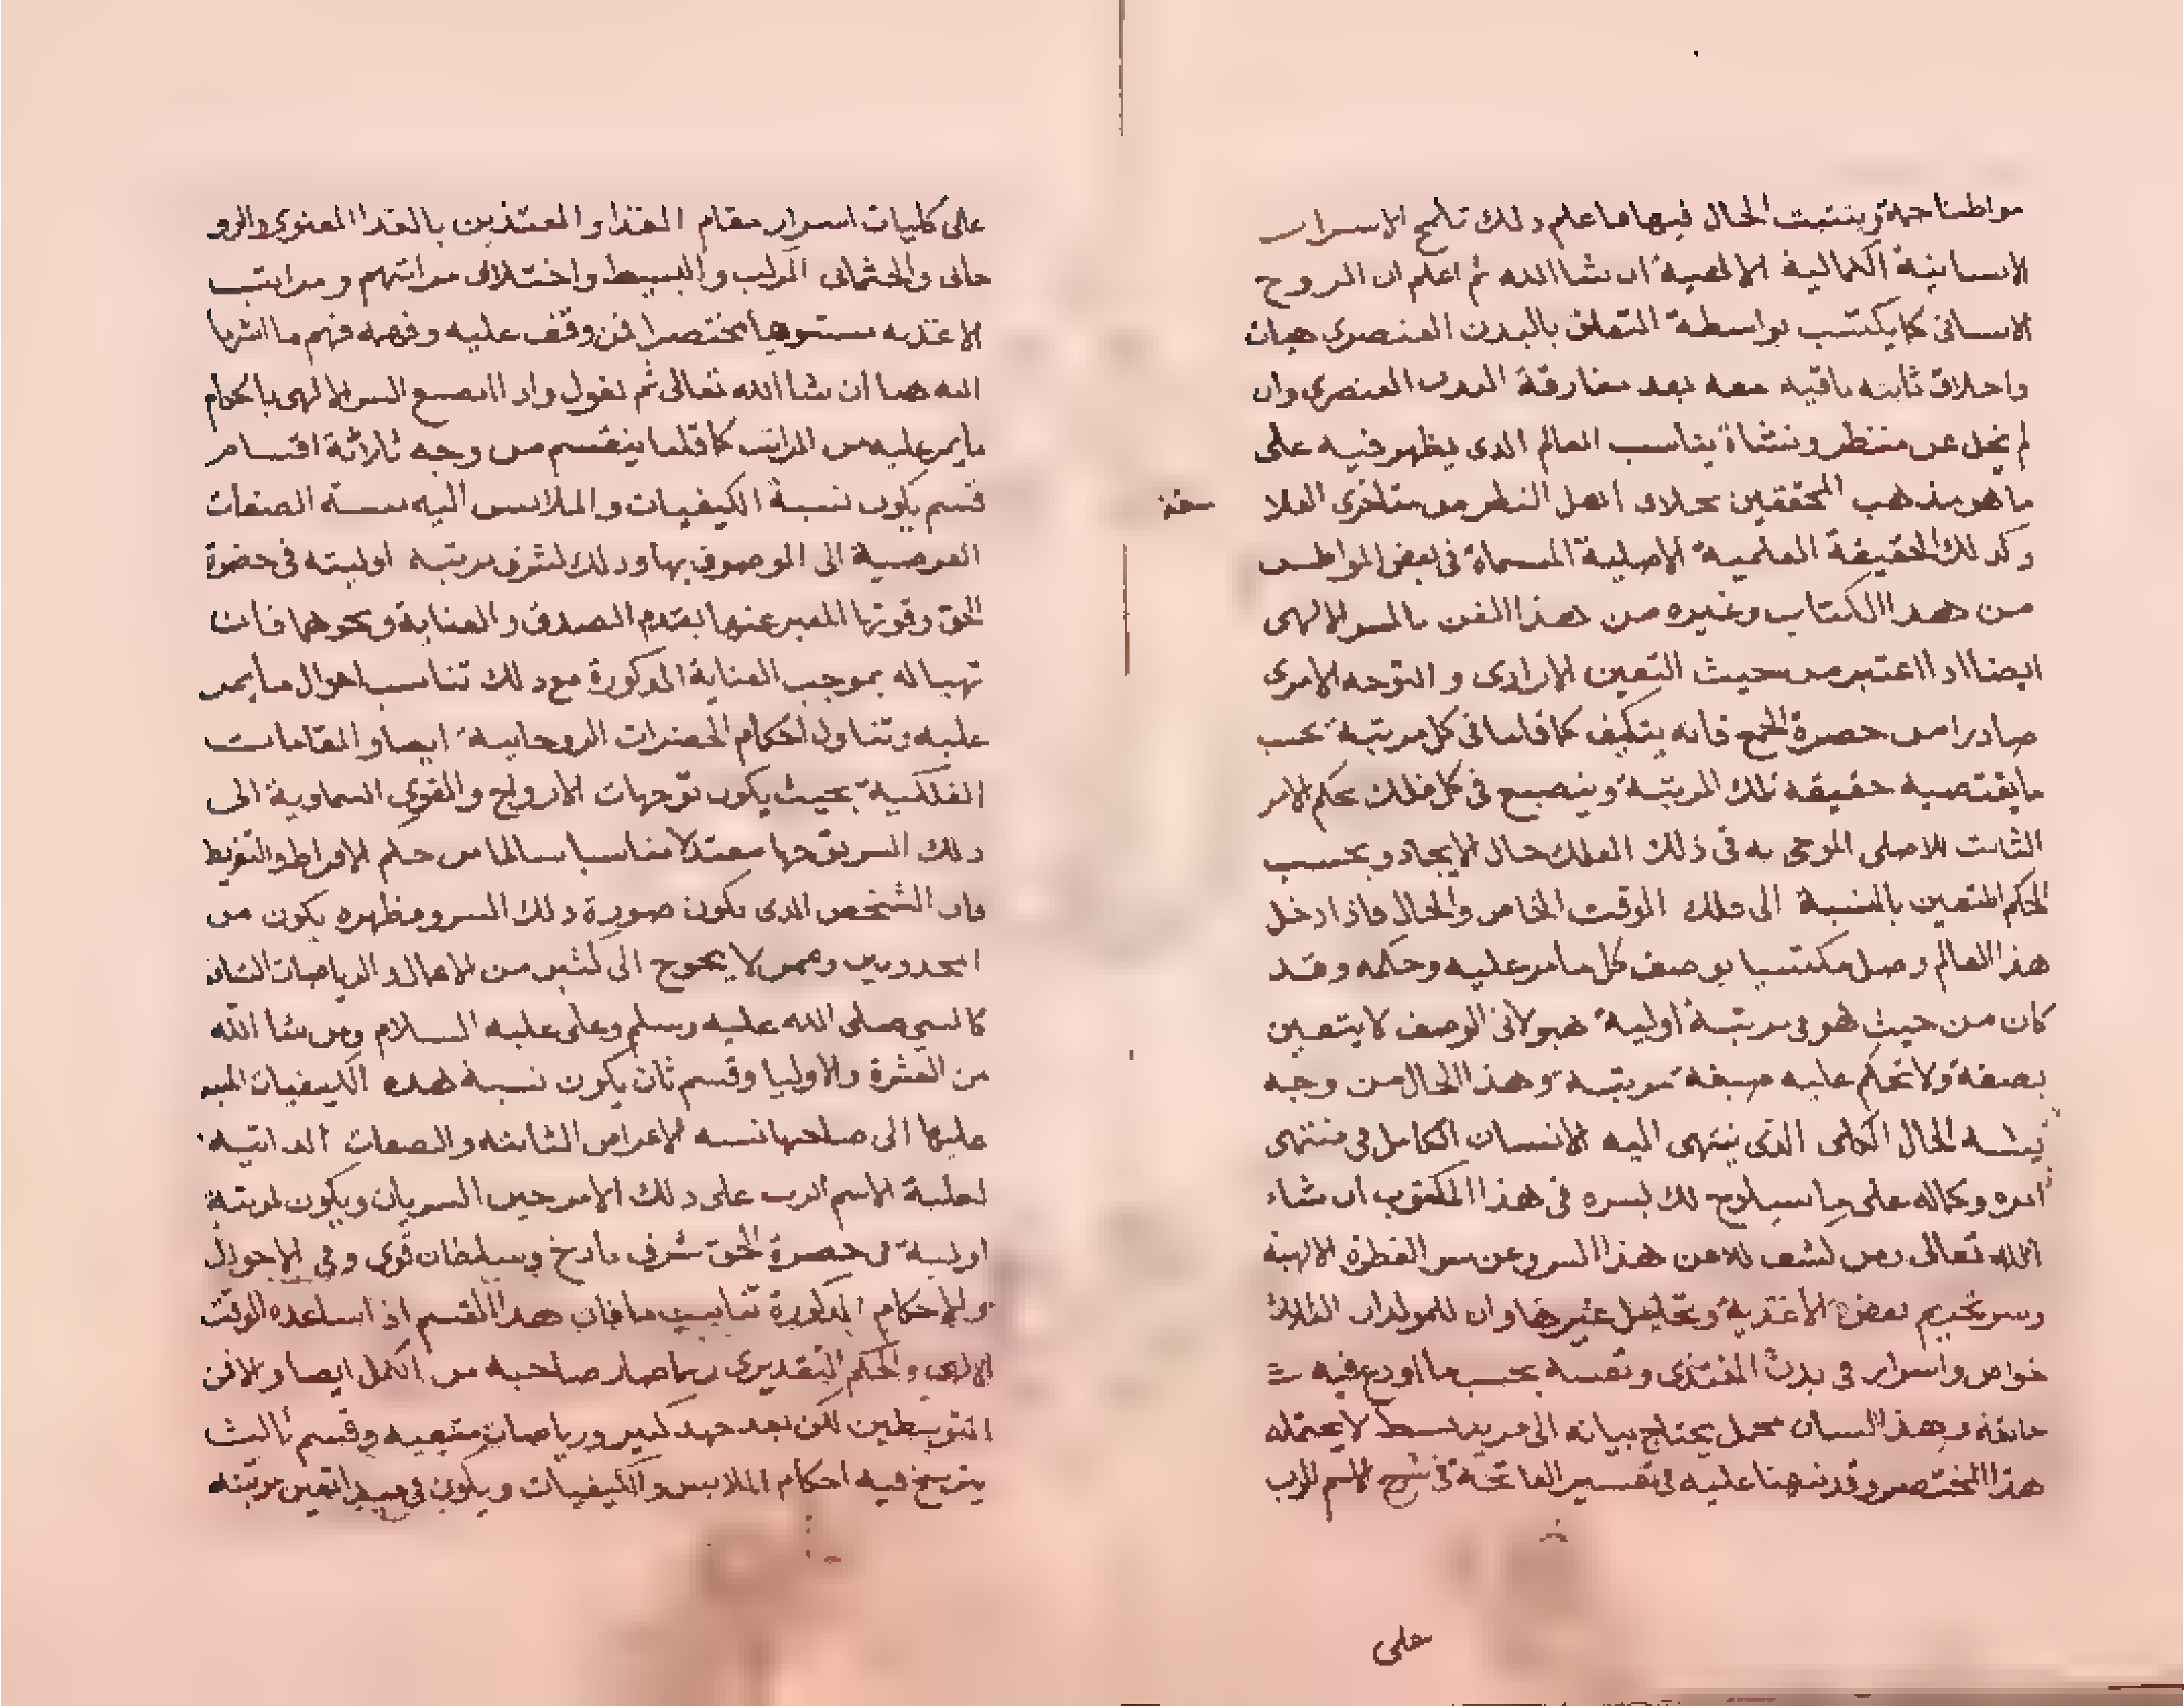 مواطنا جمة ويتثبت الحال فيها ما علم ذلك تلمح الاسرار
الانسانية الكمالية الالهية ان شا الله ثم اعلم ان الروح
الانسانى كما يكتسب بواسطة التعلق بالبدن العنصرى هيات
واخلاق ثابته باقيه معه بعد مفارقة البدن العنصرى وان
لم يخل عن منظر ونشاة يناسب العالم الذى يظهر فيه على
ما هو مذهب المحققين بخلاف اهل النظر من متاخرى الفلا
سفة
وكذلك الحقيقة العلمية الاصلية المسماة فى بعض المواطن
من هذا الكتاب وغيره من هذا الفن بالسر الالهى
ايضا اذا اعتبر من حيث التعين الارادى والتوجه الامرى
صادرا من حضرة الجمع فانه يتكيف كما قلنا فى كل مرتبة بحسب
ما يقتضيه حقيقة تلك المرتبة وينصبغ فى كل فلك بحكم الامر
الثابت الاصلى الموحى به فى ذلك الفلك حال الايجاد وبحسب
الحكم المتعين بالنسبة الى ذلك الوقت الخاص والحال فاذا دخل
هذا العالم وصل مكتسيا بوصف كل ما مر عليه وحكمه وقد
كان من حيث هو فى مرتبة اولية هيولانى الوصف لا يتعين
بصفة ولا تحكم عليه صبغة مرتبة وهذا الحال من وجه
يشبه الحال الكلى الذى ينتهى اليه الانسان الكامل فى منتهى
امره وكماله على ما سيلوح لك بسره فى هذا المكتوب ان شاء
الله تعالى ومن كشف له عن هذا السر وعن سر الفطرة الالهية
وسر تحريم بعض الاغذية وتحليل غيرها وان للمولدات الثلاث
خواص واسرار فى بدن المغتذى ونفسه بحسب ما اودع فيه
خالقه وهذا اللسان مجمل يحتاج بيانه الى مزيد بسط لا يحتمله
هذا المختصر وقد نبهنا عليه فى تفسير الفاتحة فى شرح الاسم الرب
على
على كليات اسرار مقام الغذا والمغتذين بالغذا المعنوى والرو
حانى والجثمانى المركب والبسيط واختلاف مراتبهم ومراتب
الاغذيه مستوفيا مختصرا فمن وقف عليه وفهمه فهم ما اشرنا
اليه هنا ان شا الله تعالى ثم نقول واذا انصبغ السر الالهى باحكام
ما يمر عليه من المراتب كما قلنا ينقسم من وجه ثلاثة اقسام
قسم يكون نسبة الكيفيات والملابس اليه نسبة الصفات
العرضية الى الموصوف بها وذلك لشرف مرتبة اوليته فى حضرة
الحق وقوتها المعبر عنها بقدم الصدق والعناية ونحوهما فان
تهيا له بموجب العناية المذكورة مع ذلك تناسب احوال ما يمر
عليه وتناول احكام الحضرات الروحانية ايضا والمقامات
الفلكية بحيث يكون توجهات الارواح والقوى السماوية الى
ذلك السر توجها معتدلا متناسبا سالما من حكم الافراط والتفريط
فان الشخص الذى يكون صورة ذلك السر ومظهره يكون من
المجذوبين وممن لا يحوج الى كثير من الاعمال والرياضات الشاقة
كالنبى صلى الله عليه وسلم وعلى عليه السلام ومن شا الله
من العترة والاوليا وقسم ثان يكون نسبة هذه الكيفيات المنبه
عليها الى صاحبها نسبة الاعراض الثابتة والصفات الذاتية
لغلبة الاسم الرب على ذلك الامر حين السريان ويكون لمرتبة
اولية فى حضرة الحق شرف باذخ وسلطان قوى وفى الاحوال
والاحكام المذكورة تناسب ما فان هذا القسم اذا ساعده الوقت
الالهى والحكم التقديرى ربما صار صاحبه من الكمل ايضا والا فمن
المتوسطين لكن بعد جهد كبير ورياضات متعبه وقسم ثالث
يترسخ فيه احكام الملابس والكيفيات ويكون فى مبدا تعين مرتبته